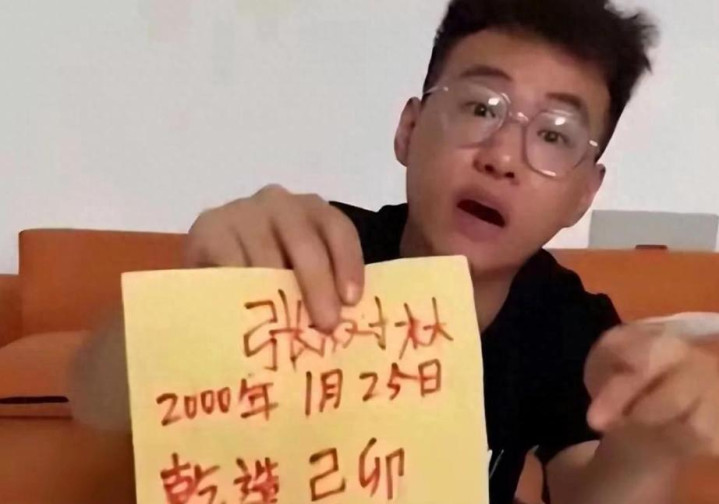 张树林
2000年 1月 25日
乾造 己卯